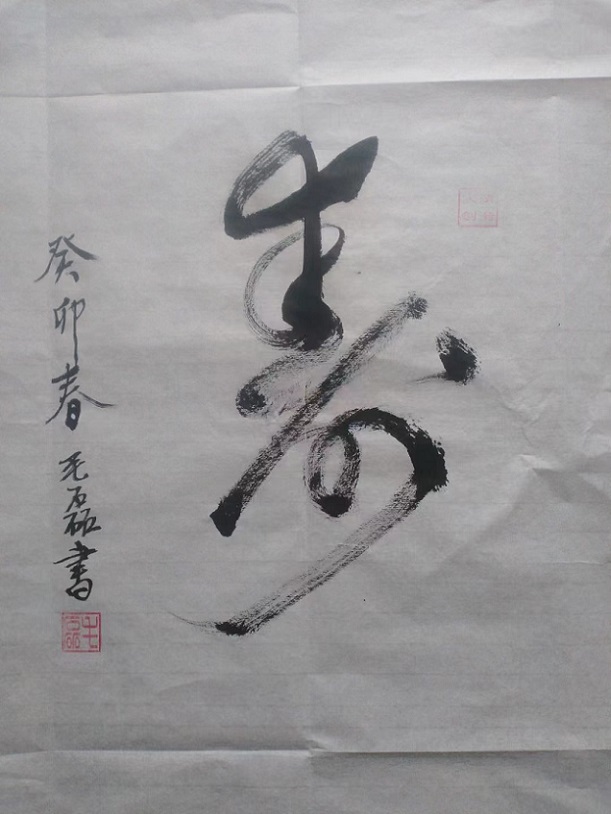 寿
癸卯春 毛磊書